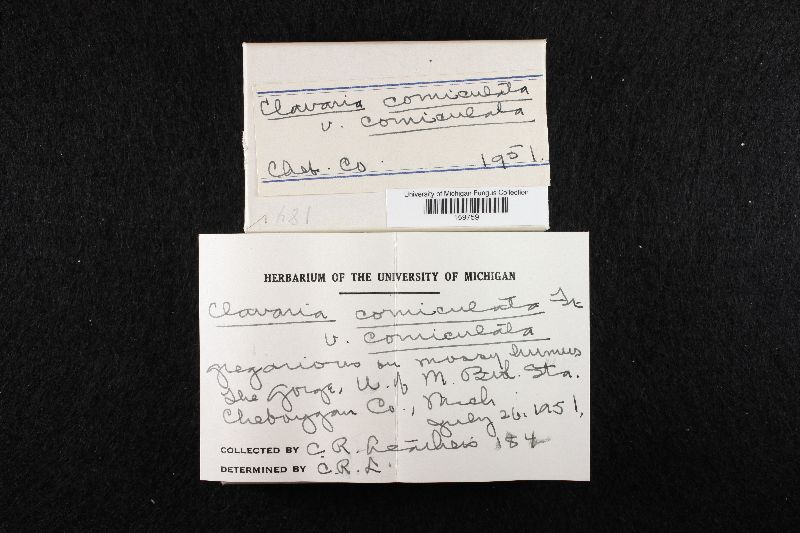 Clavaria corniculata
v. corniculata
Cheb. Co. 1951.
University of Michigan Fungus Collection
184
HERBARIUM OF THE UNIVERSITY OF MICHIGAN
Clavaria corniculata Fr.
v. corniculata
gregarious on mossy humus
The Gorge, U. of M. Biol. Sta.
Cheboygan Co., Mich
July 26, 1951.
COLLECTED BY C. R. Leathers 184
DETERMINED BY C. R. L.